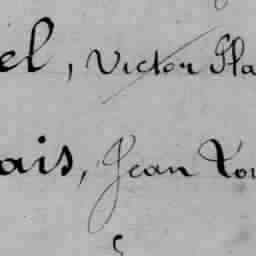 el, Victor Pla
ais, Jean Lou